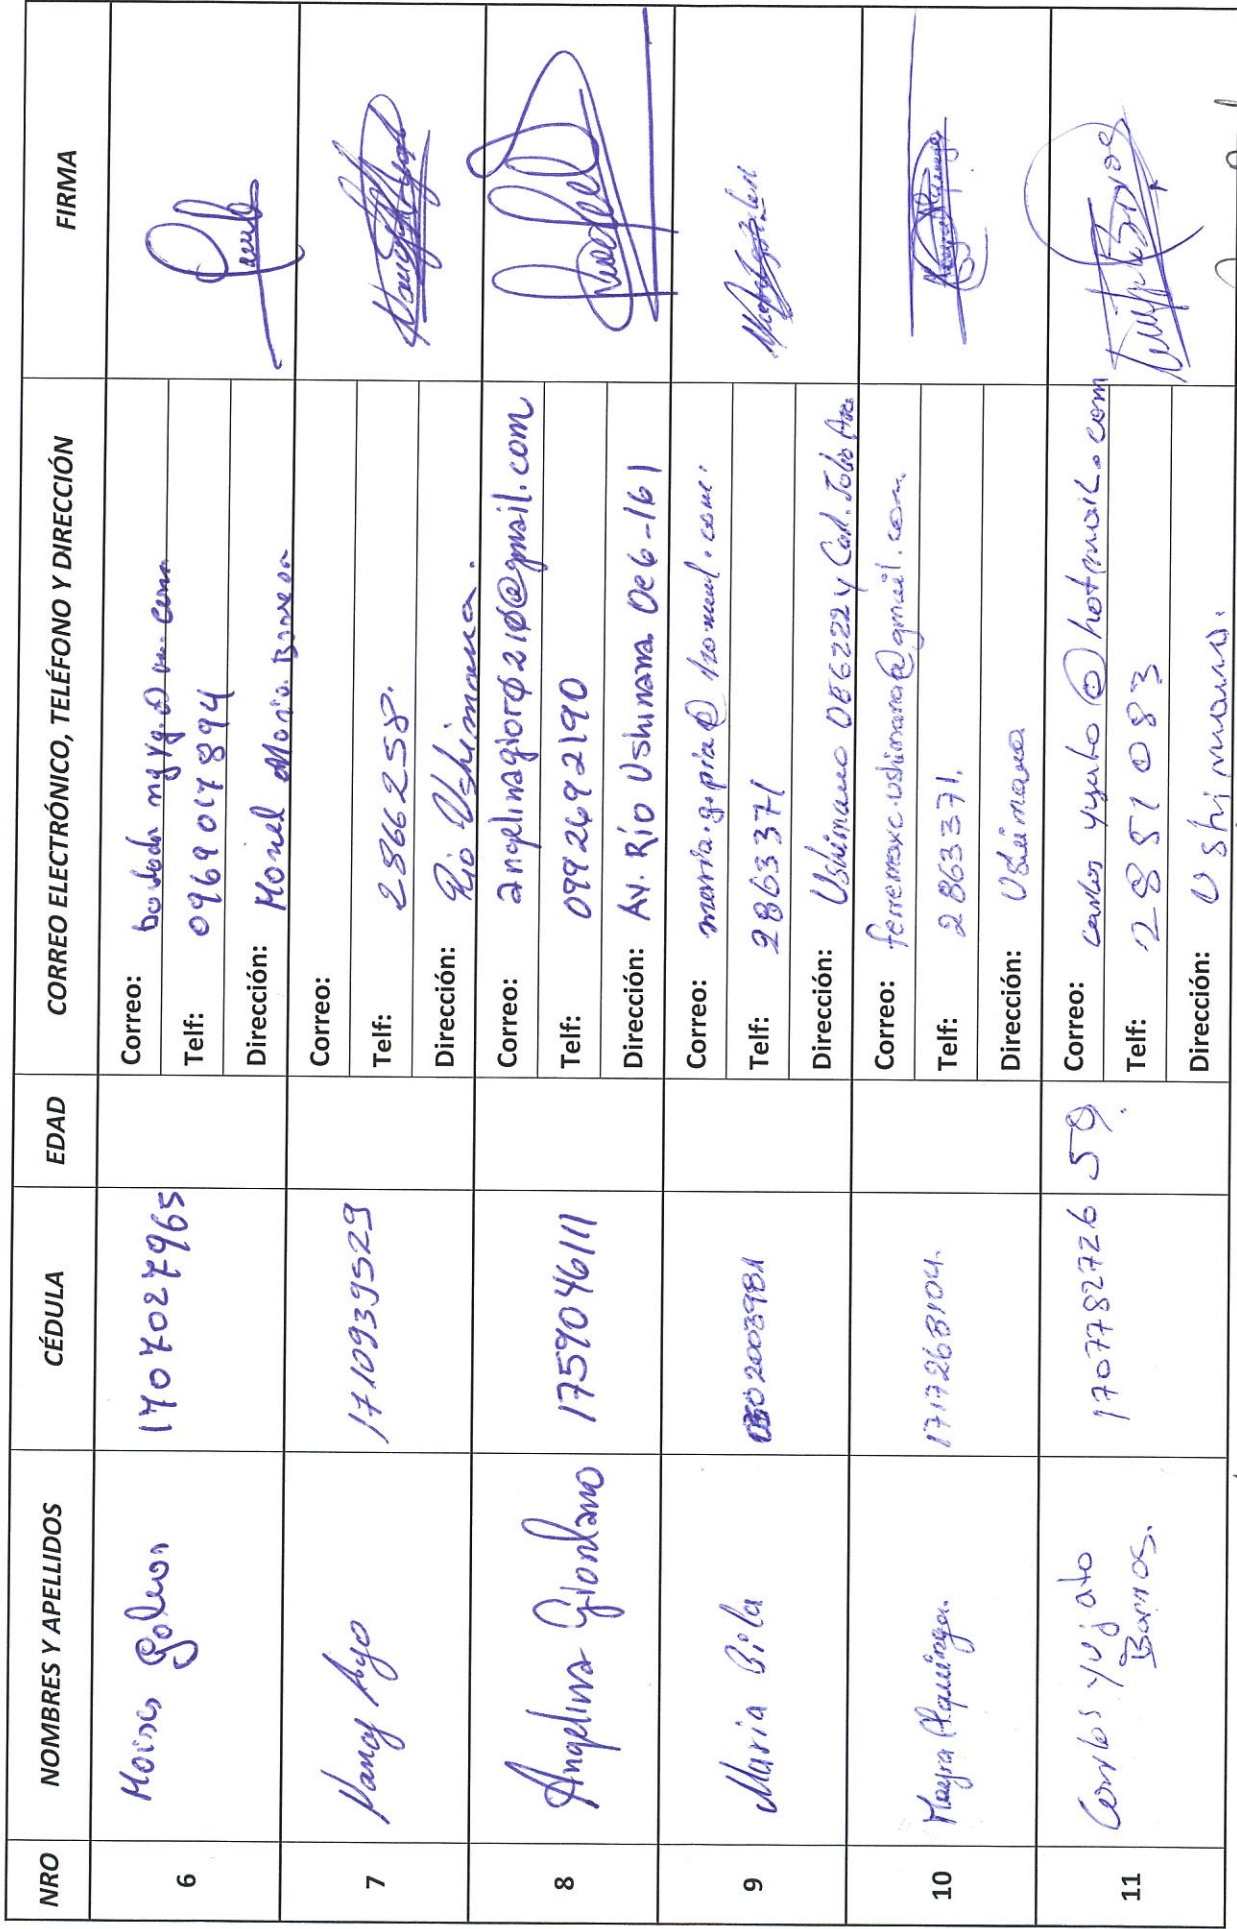 NRO NOMBRES Y APELLIDOS CÉDULA EDAD CORREO ELECTRÓNICO, TELÉFONO Y DIRECCIÓN FIRMA
6 1707027965
Correo:
Telf: 0969017894
Dirección:
7 Nancy Ayo 1710939529
Correo:
Telf: 2866258.
Dirección: Río Ushimana.
8 Angelina Giordano 1759046111
Correo: angelinagior0210@gmail.com
Telf: 0992692190
Dirección: Av. Río Ushimana Oe6-161
9 Maria Bila
Correo:
Telf: 2863371
Dirección: Ushimana OE6222 y
10 Mayra 1717268104.
Correo: ferremaxc.ushimana@gmail.com.
Telf: 2863371.
Dirección: Ushimana
11 Carlos Yujato
Barrios.
1707782726 59.
Correo: carlos yujato@hotmail.com
Telf: 2851083
Dirección: Ushimana.